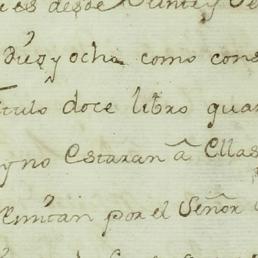 es desde Veinte y
diez y ocho como cons
titulo doce libro quar
y no Estaran â Ellas
Remitan por el Señor